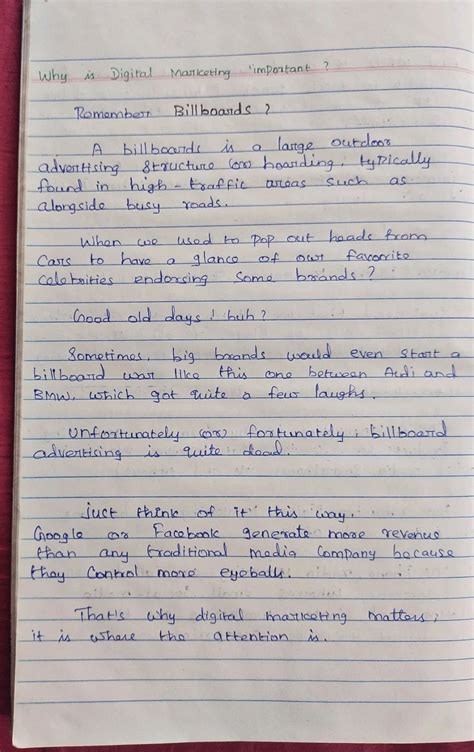 Why is Digital Marketing important ?
Remember Billboards ?
A billboards is a large outdoor
advertising structure (or) hoarding, typically
found in high-traffic areas such as
alongside busy roads.
When we used to pop out heads from
Cars to have a glance of our favorite
celebrities endorsing some brands ?
Good old days ! huh ?
Sometimes, big brands would even start a
billboard war like this one between Audi and
BMW, which got quite a few laughs.
Unfortunately (or) fortunately, billboard
advertising is quite dead.
Just think of it this way.
Google or Facebook generate more revenue
than any traditional media company because
they control more eyeballs.
That's why digital marketing matters,
it is where the attention is.